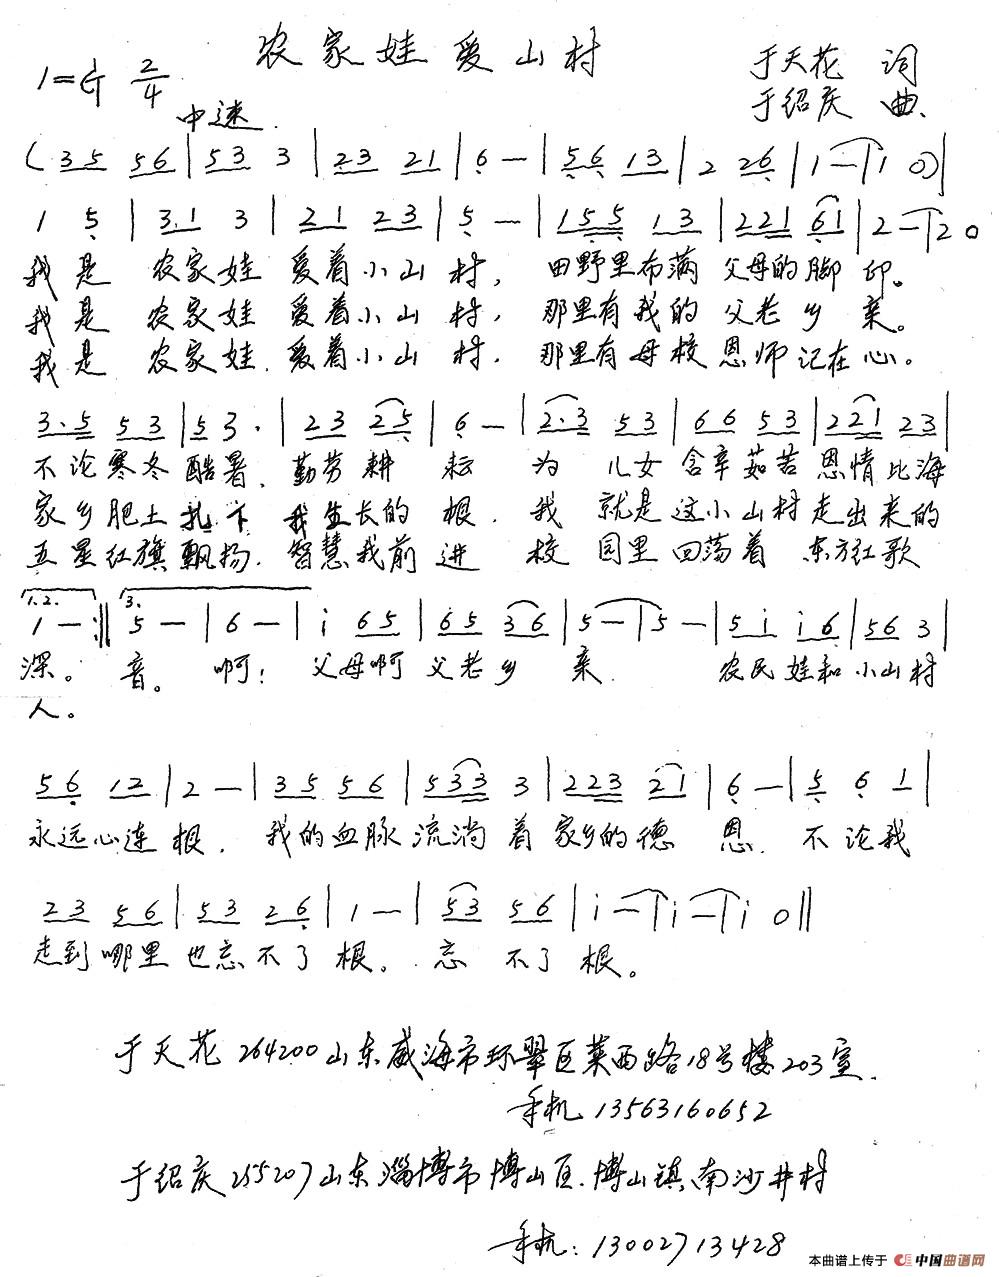 农家娃爱山村
1=G 2/4
于天花 词
于绍庆 曲
中速
(3 5 5 6 | 5 3 3 | 2 3 2 1 | 6 — | 5 6 1 3 | 2 2 6 | 1 — | 1 0) |
1 5 | 3. 1 3 | 2 1 2 3 | 5 — | 1 5 5 1 3 | 2 2 1 6 1 | 2 — | 2 0
我是 农家娃 爱着小山村, 田野里布满 父母的脚印。
我是 农家娃 爱着小山村, 那里有我的父老乡亲。
我是 农家娃 爱着小山村, 那里有母校恩师记在心。
3. 5 5 3 | 5 3. | 2 3 2 5 | 6 — | 2. 3 5 3 | 6 6 5 3 | 2 2 1 2 3 |
不论寒冬酷暑, 勤劳耕耘 为儿女含辛茹苦 恩情比海
家乡肥土扎下 我生长的根, 我就是这小山村走出来的
五星红旗飘扬, 智慧我前进 校园里回荡着 东方红歌
1.2. 3.
1 — :‖ 5 — | 6 — | i 6 5 | 6 5 3 6 | 5 — | 5 — | 5 i i 6 | 5 6 3 |
深。 音。 啊! 父母啊父老乡亲 农民娃和小山村
人。
5 6 1 2 | 2 — | 3 5 5 6 | 5 3 3 3 | 2 2 3 2 1 | 6 — | 5 6 1 |
永远心连根, 我的血脉流淌着家乡的德恩, 不论我
2 3 5 6 | 5 3 2 6 | 1 — | 5 3 5 6 | i — | i — | i 0 ‖
走到哪里也忘不了根。 忘不了根。
于天花 264200山东威海市环翠区莱西路18号楼203室.
手机 13563160652
于绍庆 255207山东淄博市博山区.博山镇南沙井村
手机: 13002713428
本曲谱上传于 中国曲谱网